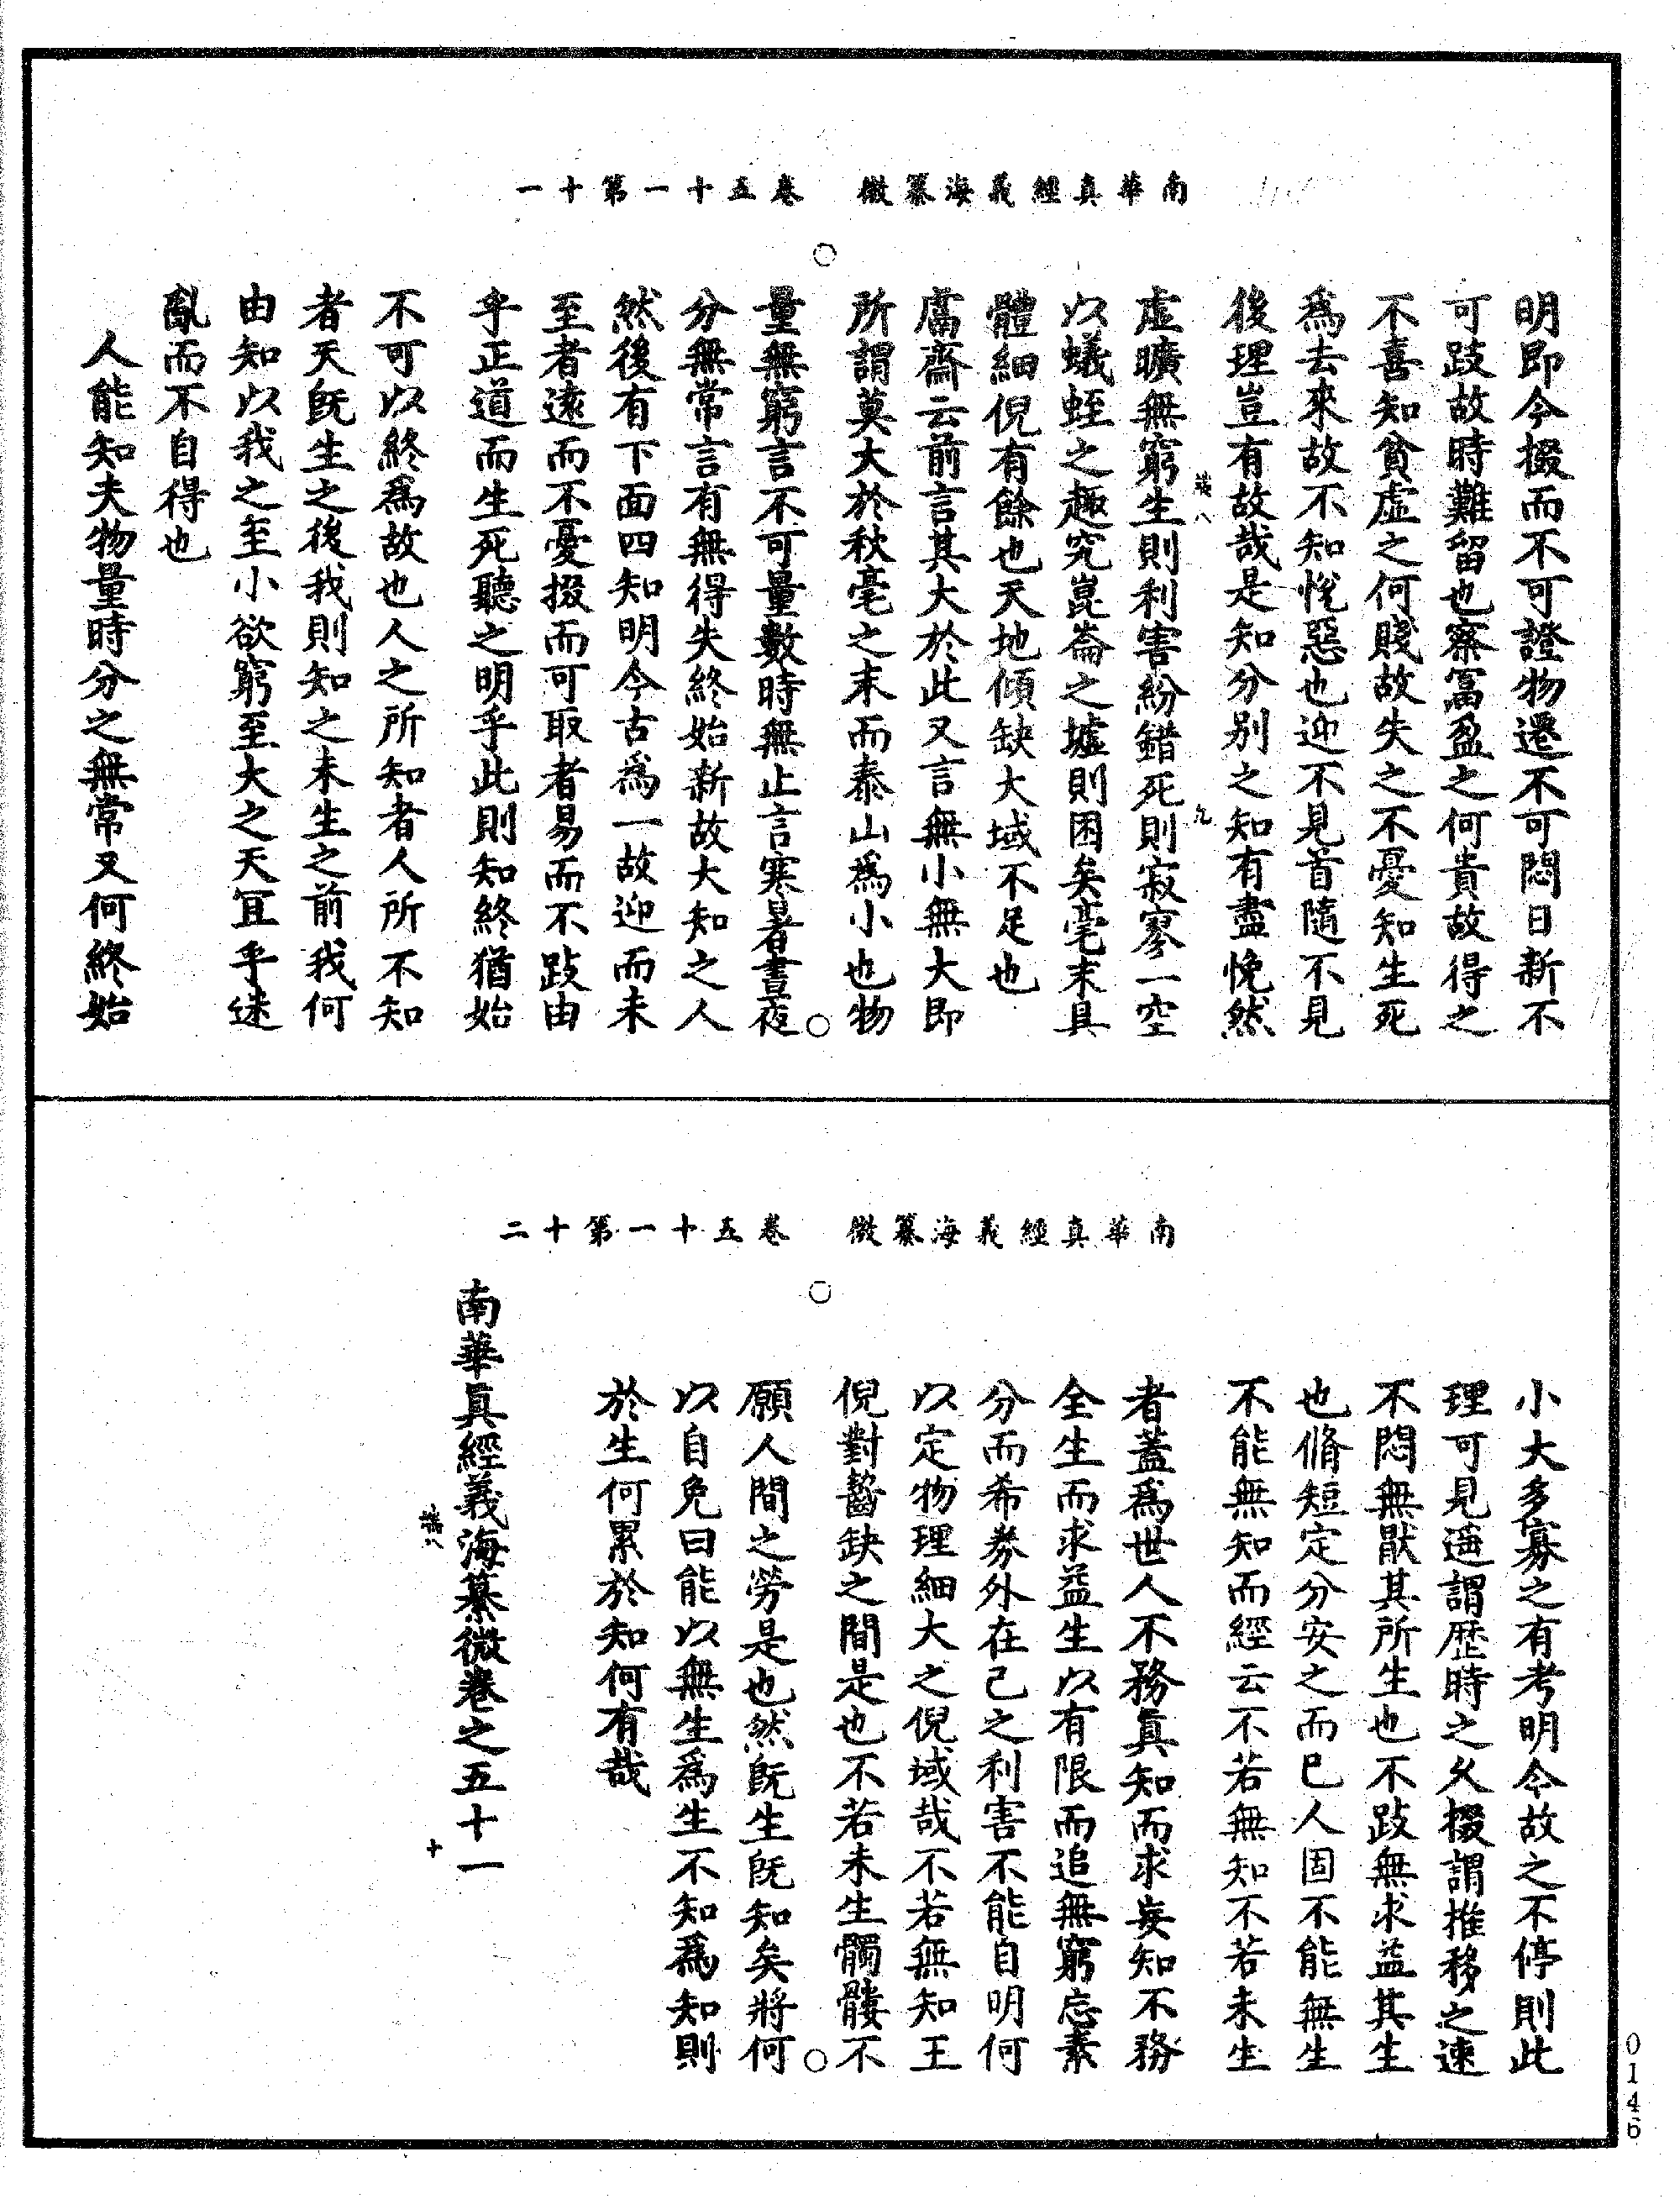 南華真經義海纂微　卷五十一第十一
明即今掇而不可證物遷不可悶日新不
可跂故時難留也察冨盈之何貴故得之
不喜知貧虛之何賤故失之不憂知生死
為去來故不知悅惡也迎不見首隨不見
後理豈有故哉是知分別之知有盡悗然
虛曠無窮生則利害紛錯死則寂寥一空
以蟻蛭之趣究崑崙之墟則困矣毫末具
體細倪有餘也天地傾缺大域不足也
鬳齋云前言其大於此又言無小無大即
所謂莫大於秋毫之末而泰山為小也物
量無窮言不可量數時無止言寒暑晝夜
分無常言有無得失終始新故大知之人
然後有下面四知明今古為一故迎而未
至者遠而不憂掇而可取者易而不跂由
乎正道而生死聽之明乎此則知終猶始
不可以終為故也人之所知者人所不知
者天旣生之後我則知之未生之前我何
由知以我之至小欲窮至大之天冝乎迷
亂而不自得也
人能知夫物量時分之無常又何終始
南華真經義海纂微　卷五十一第十二
小大多寡之有考明今故之不停則此
理可見遥謂歷時之久掇謂推移之速
不悶無厭其所生也不跂無求益其生
也脩短定分安之而已人固不能無生
不能無知而經云不若無知不若未生
者蓋為世人不務真知而求妄知不務
全生而求益生以有限而追無窮忘素
分而希券外在己之利害不能自明何
以定物理細大之倪域哉不若無知王
倪對齧缺之間是也不若未生髑髏不
願人間之勞是也然旣生旣知矣將何
以自免曰能以無生為生不知為知則
於生何累於知何有哉
南華真經義海纂微卷之五十一
十
0146